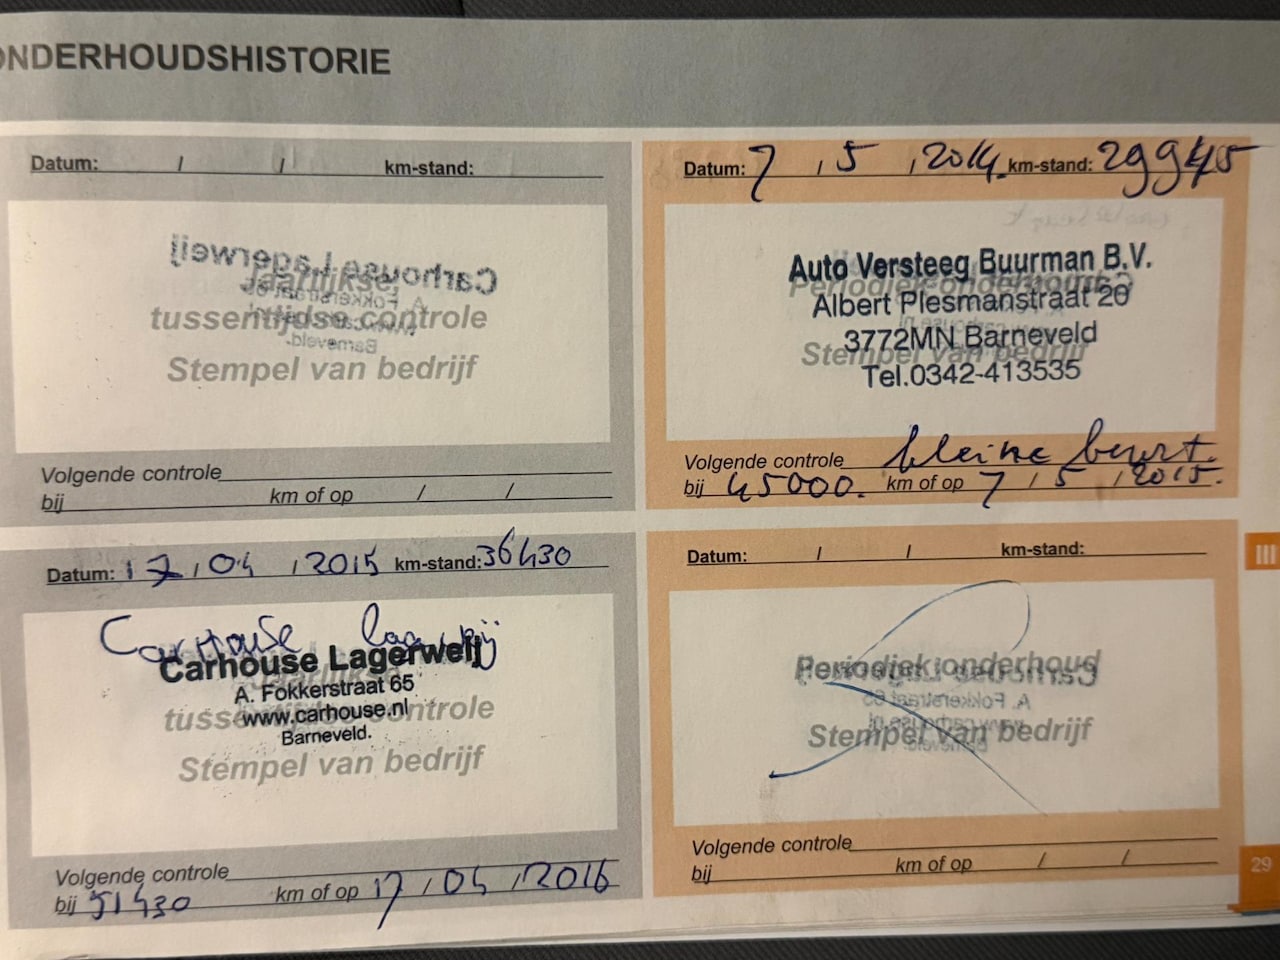 ONDERHOUDSHISTORIE
Datum: / / km-stand:
Carhouse Lagerweij
Jaarlijkse,
A. Fokkerstraat 65
tussentijdse controle
Barneveld.
Stempel van bedrijf
Volgende controle
bij km of op / /
Datum: 7 / 5 / 2014 km-stand: 29945
Auto Versteeg Buurman B.V.
Periodiek onderhoud
Albert Plesmanstraat 20
3772MN Barneveld
Stempel van bedrijf
Tel.0342-413535
Volgende controle kleine beurt.
bij 45000. km of op 7 / 5 / 2015.
Datum: 17 / 04 / 2015 km-stand: 36430
CarHouse Lagerweij
Carhouse Lagerweij
Jaarlijkse,
A. Fokkerstraat 65
tussentijdse controle
www.carhouse.nl
Barneveld.
Stempel van bedrijf
Volgende controle
bij 51430 km of op 17 / 04 / 2016
Datum: / / km-stand:
Periodiek onderhoud
Carhouse Lagerweij
A. Fokkerstraat 65
www.carhouse.nl
Stempel van bedrijf
Barneveld
Volgende controle
bij km of op / /
III
29